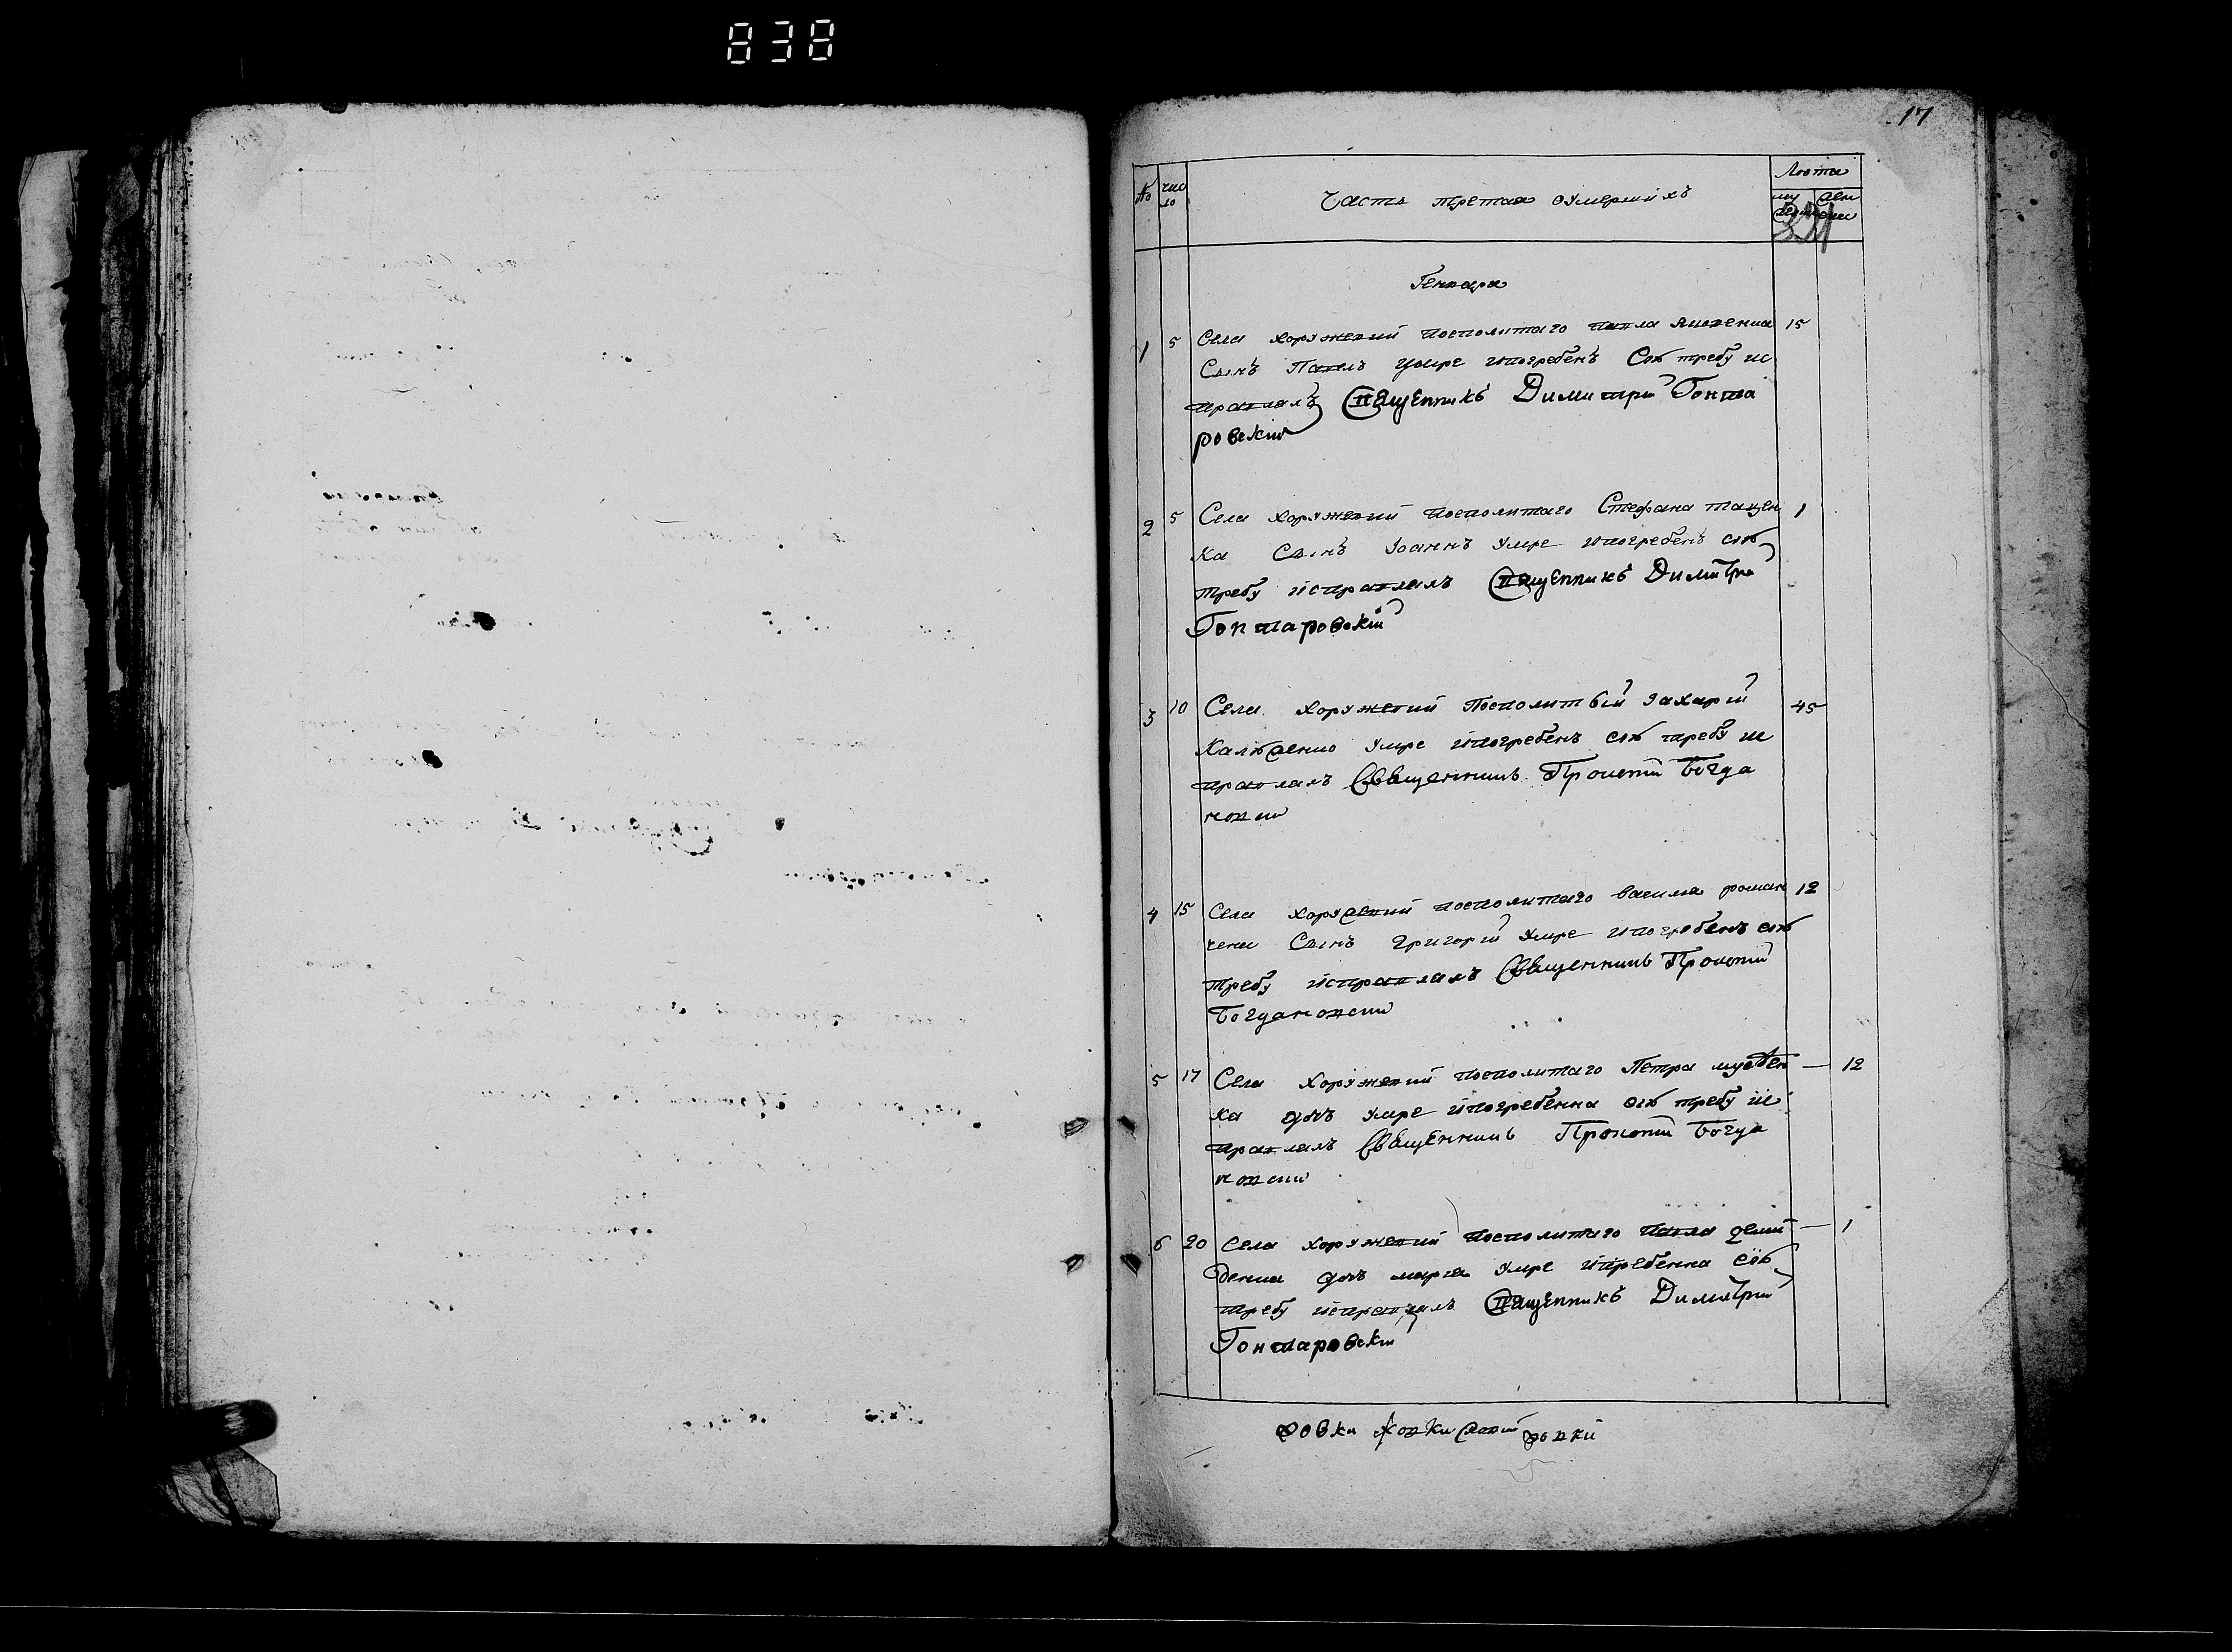 838
17
№ чис ло Часть третая оумершихъ Лѣта
му жен
Генваря
1 5 Села хоружевки посполитаго павла 15
Сынъ Павелъ умре ипогребенъ Сію требу ис
правлялъ Священникъ Димитрій Гонта
ровскій
2 5 Села хоружевки посполитаго Стефана тацен 1
ка Сынъ Іоаннъ умре ипогребенъ сію
требу исправлялъ Священникъ Димитрій
Гонтаровскій
3 10 Села хоружевки Посполитый Захарій 45
умре ипогребенъ сію требу ис
правлялъ Священникъ Прокопій Богда
новскій
4 15 Села хоружевки посполитаго василя роман 12
ченка Сынъ Григорій умре ипогребенъ сію
требу исправлялъ Священникъ Прокопій
Богдановскій
5 17 Села хоружевки посполитаго Петра — 12
ка дочъ умре ипогребенна сію требу ис
правлялъ Священникъ Прокопій Богда
новскій
6 20 Села хоружевки посполитаго павла деми — 1
денка дочъ марія умре ипгребенна сію
требу исправлялъ Священникъ Димитрій
Гонтаровскій